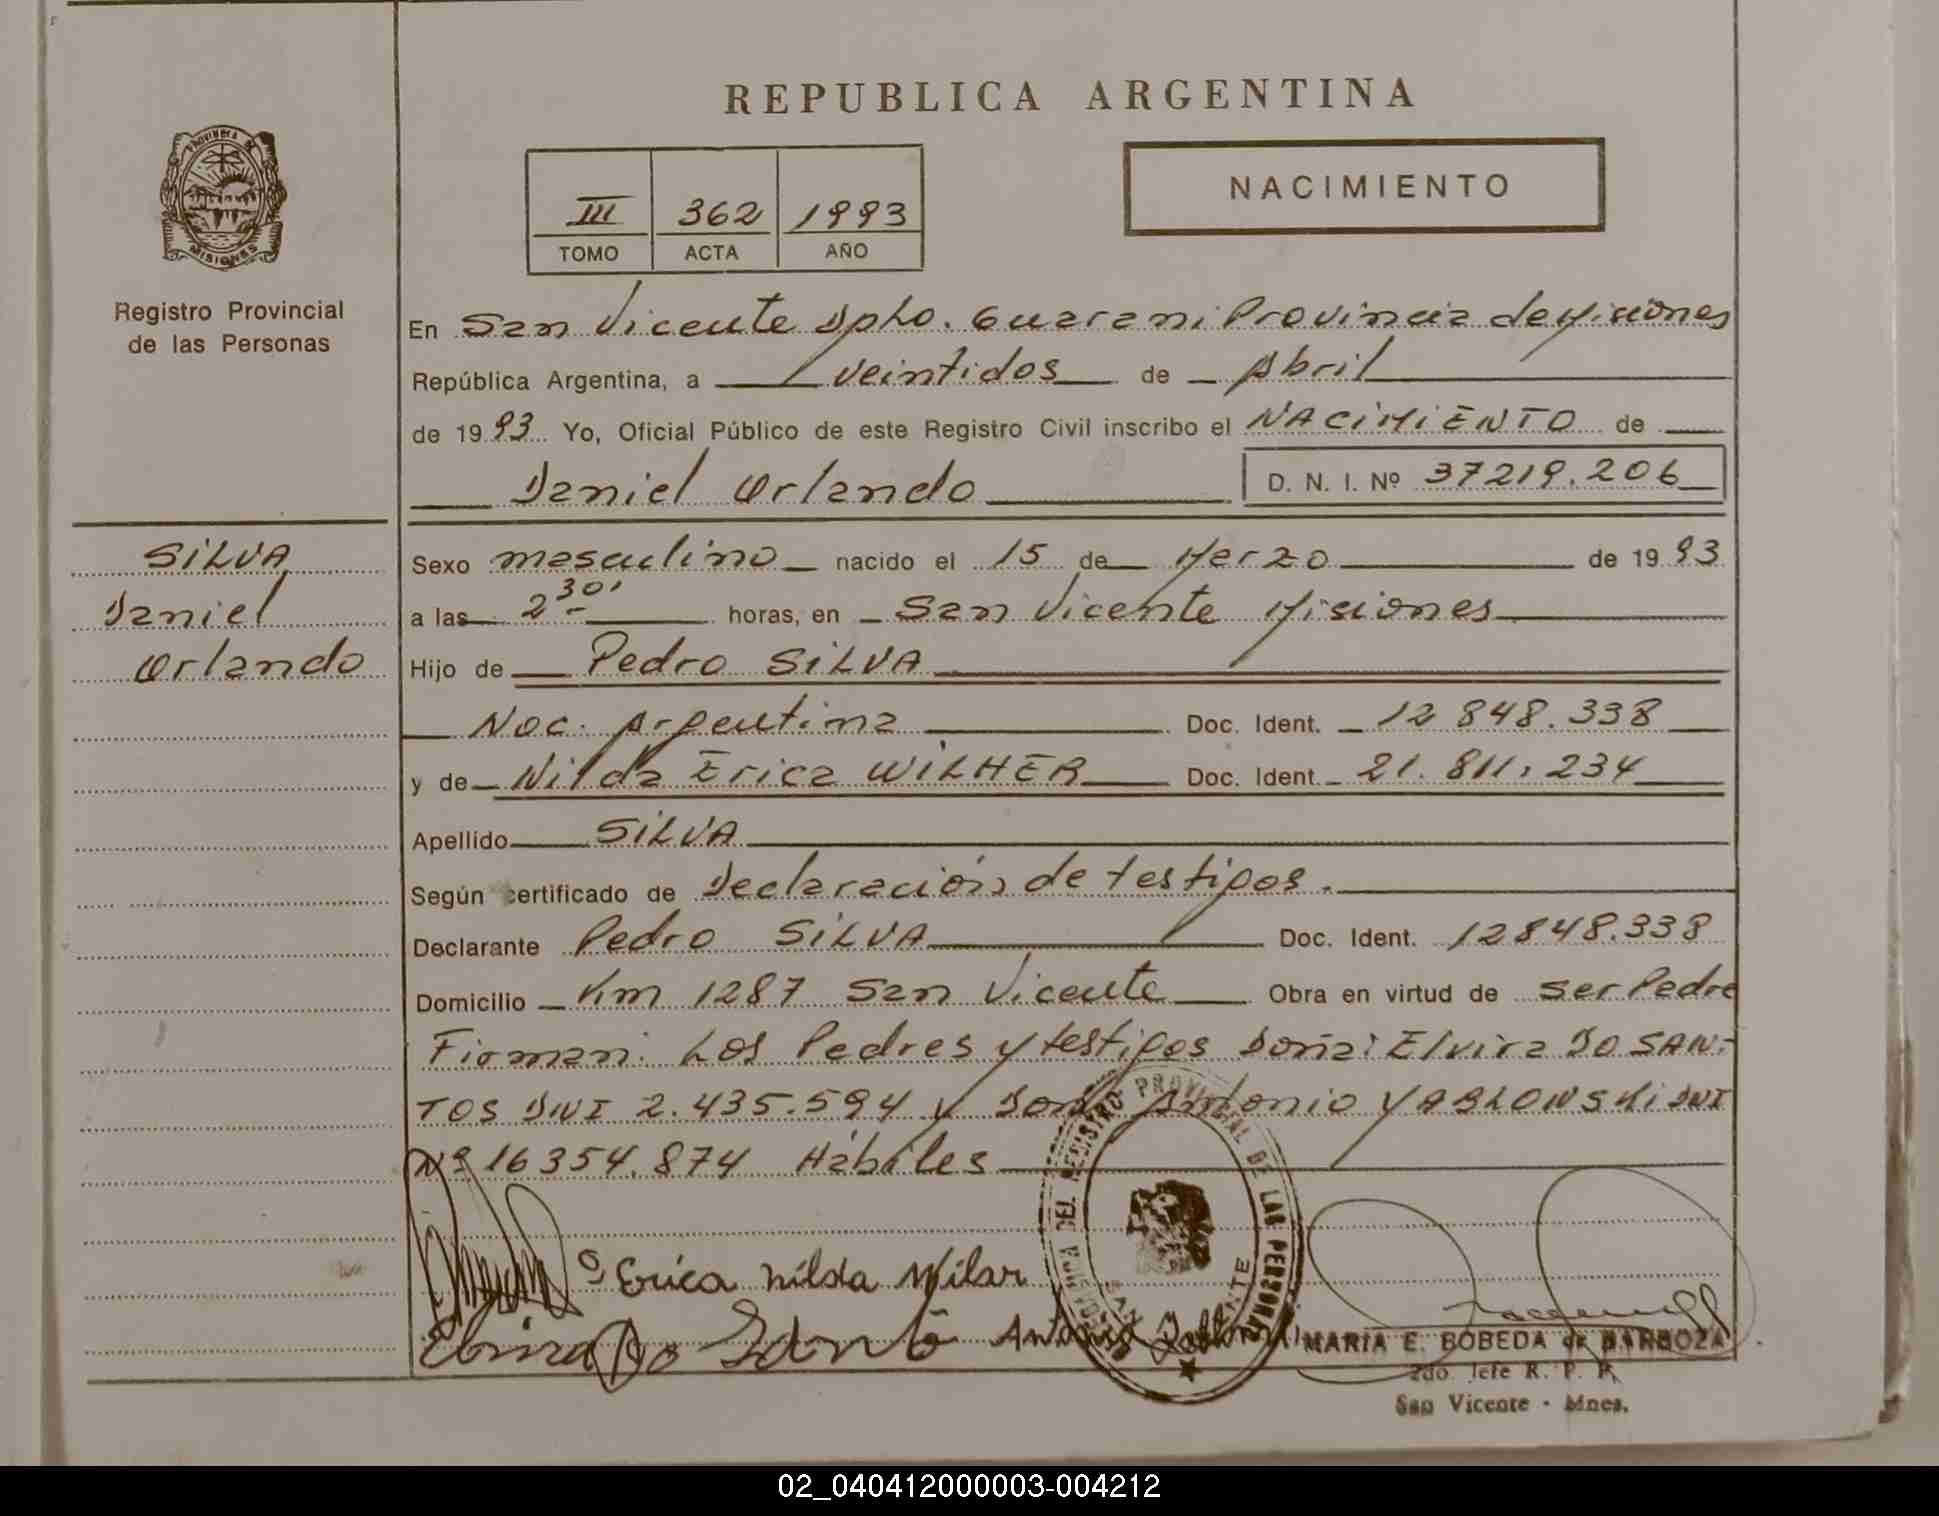 REPUBLICA ARGENTINA
PROVINCIA DE
MISIONES
Registro Provincial
de las Personas
III 362 1993
TOMO ACTA AÑO
NACIMIENTO
En San Vicente Dpto. Guarani Provincia de Misiones
República Argentina, a veintidos de Abril
de 1993 Yo, Oficial Público de este Registro Civil inscribo el NACIMIENTO de
Daniel Orlando D. N. I. Nº 37219.206
SILVA
Daniel
Orlando
Sexo masculino nacido el 15 de Marzo de 1993
a las 2 30' horas, en San Vicente Misiones
Hijo de Pedro SILVA
Nac. Argentina Doc. Ident. 12 848.338
y de Nilda Erica WILHER Doc. Ident. 21.811.234
Apellido SILVA
Según certificado de Declaración de testigos.
Declarante Pedro SILVA Doc. Ident. 12848.338
Domicilio Km 1287 San Vicente Obra en virtud de ser Padre
Firman: Los Padres y testigos Doña: Elvira DO SAN-
TOS DNI 2.435.594 y Don Antonio YABLONSKI DNI
Nº 16354.874 Hábiles
DEL REGISTRO PROVINCIAL DE LAS PERSONAS
Erica nilda Wilar
Elvira Do Santo Antonio
MARIA E. BOBEDA de BARBOZA
2do. Jefe R. P. P.
San Vicente - Mnes.
02_040412000003-004212